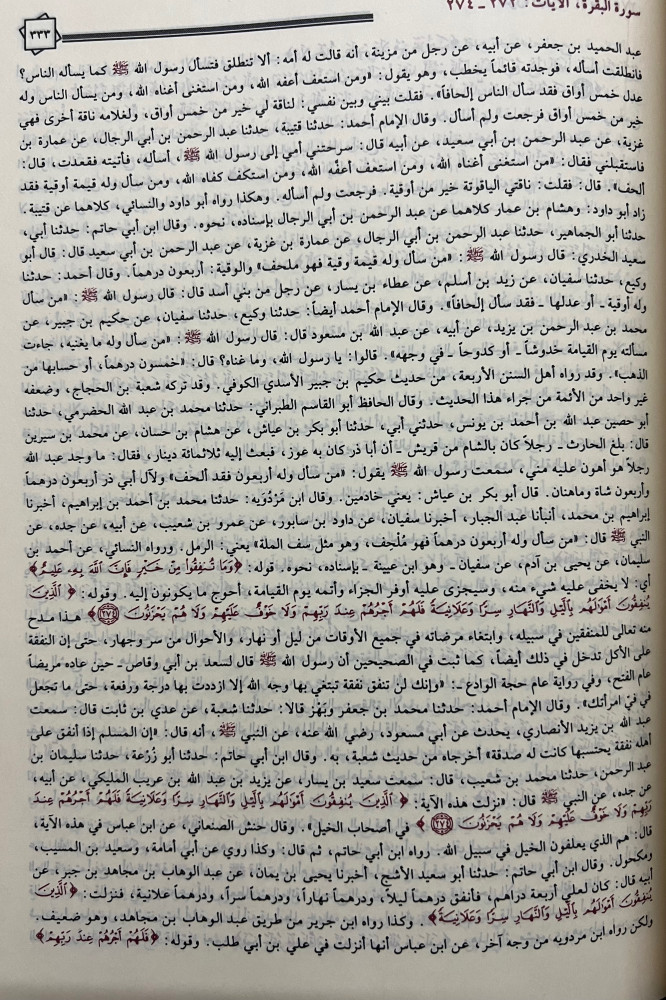 سورة البقرة، الآيات: ٢٧٢ - ٢٧٤
٣٣٣
عبد الحميد بن جعفر، عن أبيه، عن رجل من مزينة، أنه قالت له أمه: ألا تنطلق فتسأل رسول الله ﷺ كما يسأله الناس؟
فانطلقت أسأله، فوجدته قائماً يخطب، وهو يقول: «ومن استعف أعفه الله، ومن استغنى أغناه الله، ومن يسأل الناس وله
عدل خمس أواق فقد سأل الناس إلحافاً». فقلت بيني وبين نفسي: لناقة لي خير من خمس أواق، ولغلامه ناقة أخرى فهي
خير من خمس أواق فرجعت ولم أسأل. وقال الإمام أحمد: حدثنا قتيبة، حدثنا عبد الرحمن بن أبي الرجال، عن عمارة بن
غزية، عن عبد الرحمن بن أبي سعيد، عن أبيه قال: سرحتني أمي إلى رسول الله ﷺ، أسأله، فأتيته فقعدت، قال:
فاستقبلني فقال: «من استغنى أغناه الله، ومن استعف أعفّه الله، ومن استكف كفاه الله، ومن سأل وله قيمة أوقية فقد
ألحف». قال: فقلت: ناقتي الياقوتة خير من أوقية. فرجعت ولم أسأله. وهكذا رواه أبو داود والنسائي، كلاهما عن قتيبة.
زاد أبو داود: وهشام بن عمار كلاهما عن عبد الرحمن بن أبي الرجال بإسناده، نحوه. وقال ابن أبي حاتم: حدثنا أبي،
حدثنا أبو الجماهير، حدثنا عبد الرحمن بن أبي الرجال، عن عمارة بن غزية، عن عبد الرحمن بن أبي سعيد قال: قال أبو
سعيد الخدري: قال رسول الله ﷺ: «من سأل وله قيمة وقية فهو ملحف» والوقية: أربعون درهماً. وقال أحمد: حدثنا
وكيع، حدثنا سفيان، عن زيد بن أسلم، عن عطاء بن يسار، عن رجل من بني أسد قال: قال رسول الله ﷺ: «من سأل
وله أوقية - أو عدلها - فقد سأل إلحافاً». وقال الإمام أحمد أيضاً: حدثنا وكيع، حدثنا سفيان، عن حكيم بن جبير، عن
محمد بن عبد الرحمن بن يزيد، عن أبيه، عن عبد الله بن مسعود قال: قال رسول الله ﷺ: «من سأل وله ما يغنيه، جاءت
مسألته يوم القيامة خدوشاً - أو كدوحاً - في وجهه». قالوا: يا رسول الله، وما غناه؟ قال: «خمسون درهماً، أو حسابها من
الذهب». وقد رواه أهل السنن الأربعة، من حديث حكيم بن جبير الأسدي الكوفي. وقد تركه شعبة بن الحجاج، وضعفه
غير واحد من الأئمة من جراء هذا الحديث. وقال الحافظ أبو القاسم الطبراني: حدثنا محمد بن عبد الله الحضرمي، حدثنا
أبو حصين عبد الله بن أحمد بن يونس، حدثني أبي، حدثنا أبو بكر بن عياش، عن هشام بن حسان، عن محمد بن سيرين
قال: بلغ الحارث - رجلاً كان بالشام من قريش - أن أبا ذر كان به عوز، فبعث إليه ثلاثمائة دينار، فقال: ما وجد عبد الله
رجلاً هو أهون عليه مني، سمعت رسول الله ﷺ يقول: «من سأل وله أربعون فقد ألحف» ولآل أبي ذر أربعون درهماً
وأربعون شاة وماهنان. قال أبو بكر بن عياش: يعني خادمين. وقال ابن مَرْدُوَيه: حدثنا محمد بن أحمد بن إبراهيم، أخبرنا
إبراهيم بن محمد، أنبأنا عبد الجبار، أخبرنا سفيان، عن داود بن سابور، عن عمرو بن شعيب، عن أبيه، عن جده، عن
النبي ﷺ قال: «من سأل وله أربعون درهماً فهو مُلْحف، وهو مثل سف الملة» يعني: الرمل. ورواه النسائي، عن أحمد بن
سليمان، عن يحيى بن آدم، عن سفيان - وهو ابن عيينة - بإسناده، نحوه. قوله: ﴿وَمَا تُنفِقُوا مِنْ خَيْرٍ فَإِنَّ اللَّهَ بِهِ عَلِيمٌ﴾
أي: لا يخفى عليه شيء منه، وسيجزى عليه أوفر الجزاء وأتمه يوم القيامة، أحوج ما يكونون إليه. وقوله: ﴿الَّذِينَ
يُنفِقُونَ أَمْوَالَهُم بِاللَّيْلِ وَالنَّهَارِ سِرًّا وَعَلَانِيَةً فَلَهُمْ أَجْرُهُمْ عِندَ رَبِّهِمْ وَلَا خَوْفٌ عَلَيْهِمْ وَلَا هُمْ يَحْزَنُونَ ﴿٢٧٤﴾﴾ هذا مدح
منه تعالى للمنفقين في سبيله، وابتغاء مرضاته في جميع الأوقات من ليل أو نهار، والأحوال من سر وجهار، حتى إن النفقة
على الأكل تدخل في ذلك أيضاً، كما ثبت في الصحيحين أن رسول الله ﷺ قال لسعد بن أبي وقاص - حين عاده مريضاً
عام الفتح، وفي رواية عام حجة الوادع -: «وإنك لن تنفق نفقة تبتغي بها وجه الله إلا ازددت بها درجة ورفعة، حتى ما تجعل
في فيّ امرأتك». وقال الإمام أحمد: حدثنا محمد بن جعفر وبَهْز قالا: حدثنا شعبة، عن عدي بن ثابت قال: سمعت
عبد الله بن يزيد الأنصاري، يحدث عن أبي مسعود، رضي الله عنه، عن النبي ﷺ، أنه قال: «إن المسلم إذا أنفق على
أهله نفقة يحتسبها كانت له صدقة» أخرجاه من حديث شعبة، به. وقال ابن أبي حاتم: حدثنا أبو زُرْعة، حدثنا سليمان بن
عبد الرحمن، حدثنا محمد بن شعيب، قال: سمعت سعيد بن يسار، عن يزيد بن عبد الله بن عريب المليكي، عن أبيه،
عن جده، عن النبي ﷺ قال: «نزلت هذه الآية: ﴿الَّذِينَ يُنفِقُونَ أَمْوَالَهُم بِاللَّيْلِ وَالنَّهَارِ سِرًّا وَعَلَانِيَةً فَلَهُمْ أَجْرُهُمْ عِندَ
رَبِّهِمْ وَلَا خَوْفٌ عَلَيْهِمْ وَلَا هُمْ يَحْزَنُونَ ﴿٢٧٤﴾﴾ في أصحاب الخيل». وقال حنش الصنعاني، عن ابن عباس في هذه الآية،
قال: هم الذي يعلفون الخيل في سبيل الله. رواه ابن أبي حاتم، ثم قال: وكذا روي عن أبي أمامة، وسعيد بن المسيب،
ومكحول. وقال ابن أبي حاتم: حدثنا أبو سعيد الأشج، أخبرنا يحيى بن يمان، عن عبد الوهاب بن مجاهد بن جبر، عن
أبيه قال: كان لعلي أربعة دراهم، فأنفق درهماً ليلاً، ودرهماً نهاراً، ودرهماً سراً، ودرهماً علانية، فنزلت: ﴿الَّذِينَ
يُنفِقُونَ أَمْوَالَهُم بِاللَّيْلِ وَالنَّهَارِ سِرًّا وَعَلَانِيَةً﴾. وكذا رواه ابن جرير من طريق عبد الوهاب بن مجاهد، وهو ضعيف.
ولكن رواه ابن مردويه من وجه آخر، عن ابن عباس أنها أنزلت في علي بن أبي طلب. وقوله: ﴿فَلَهُمْ أَجْرُهُمْ عِندَ رَبِّهِمْ﴾